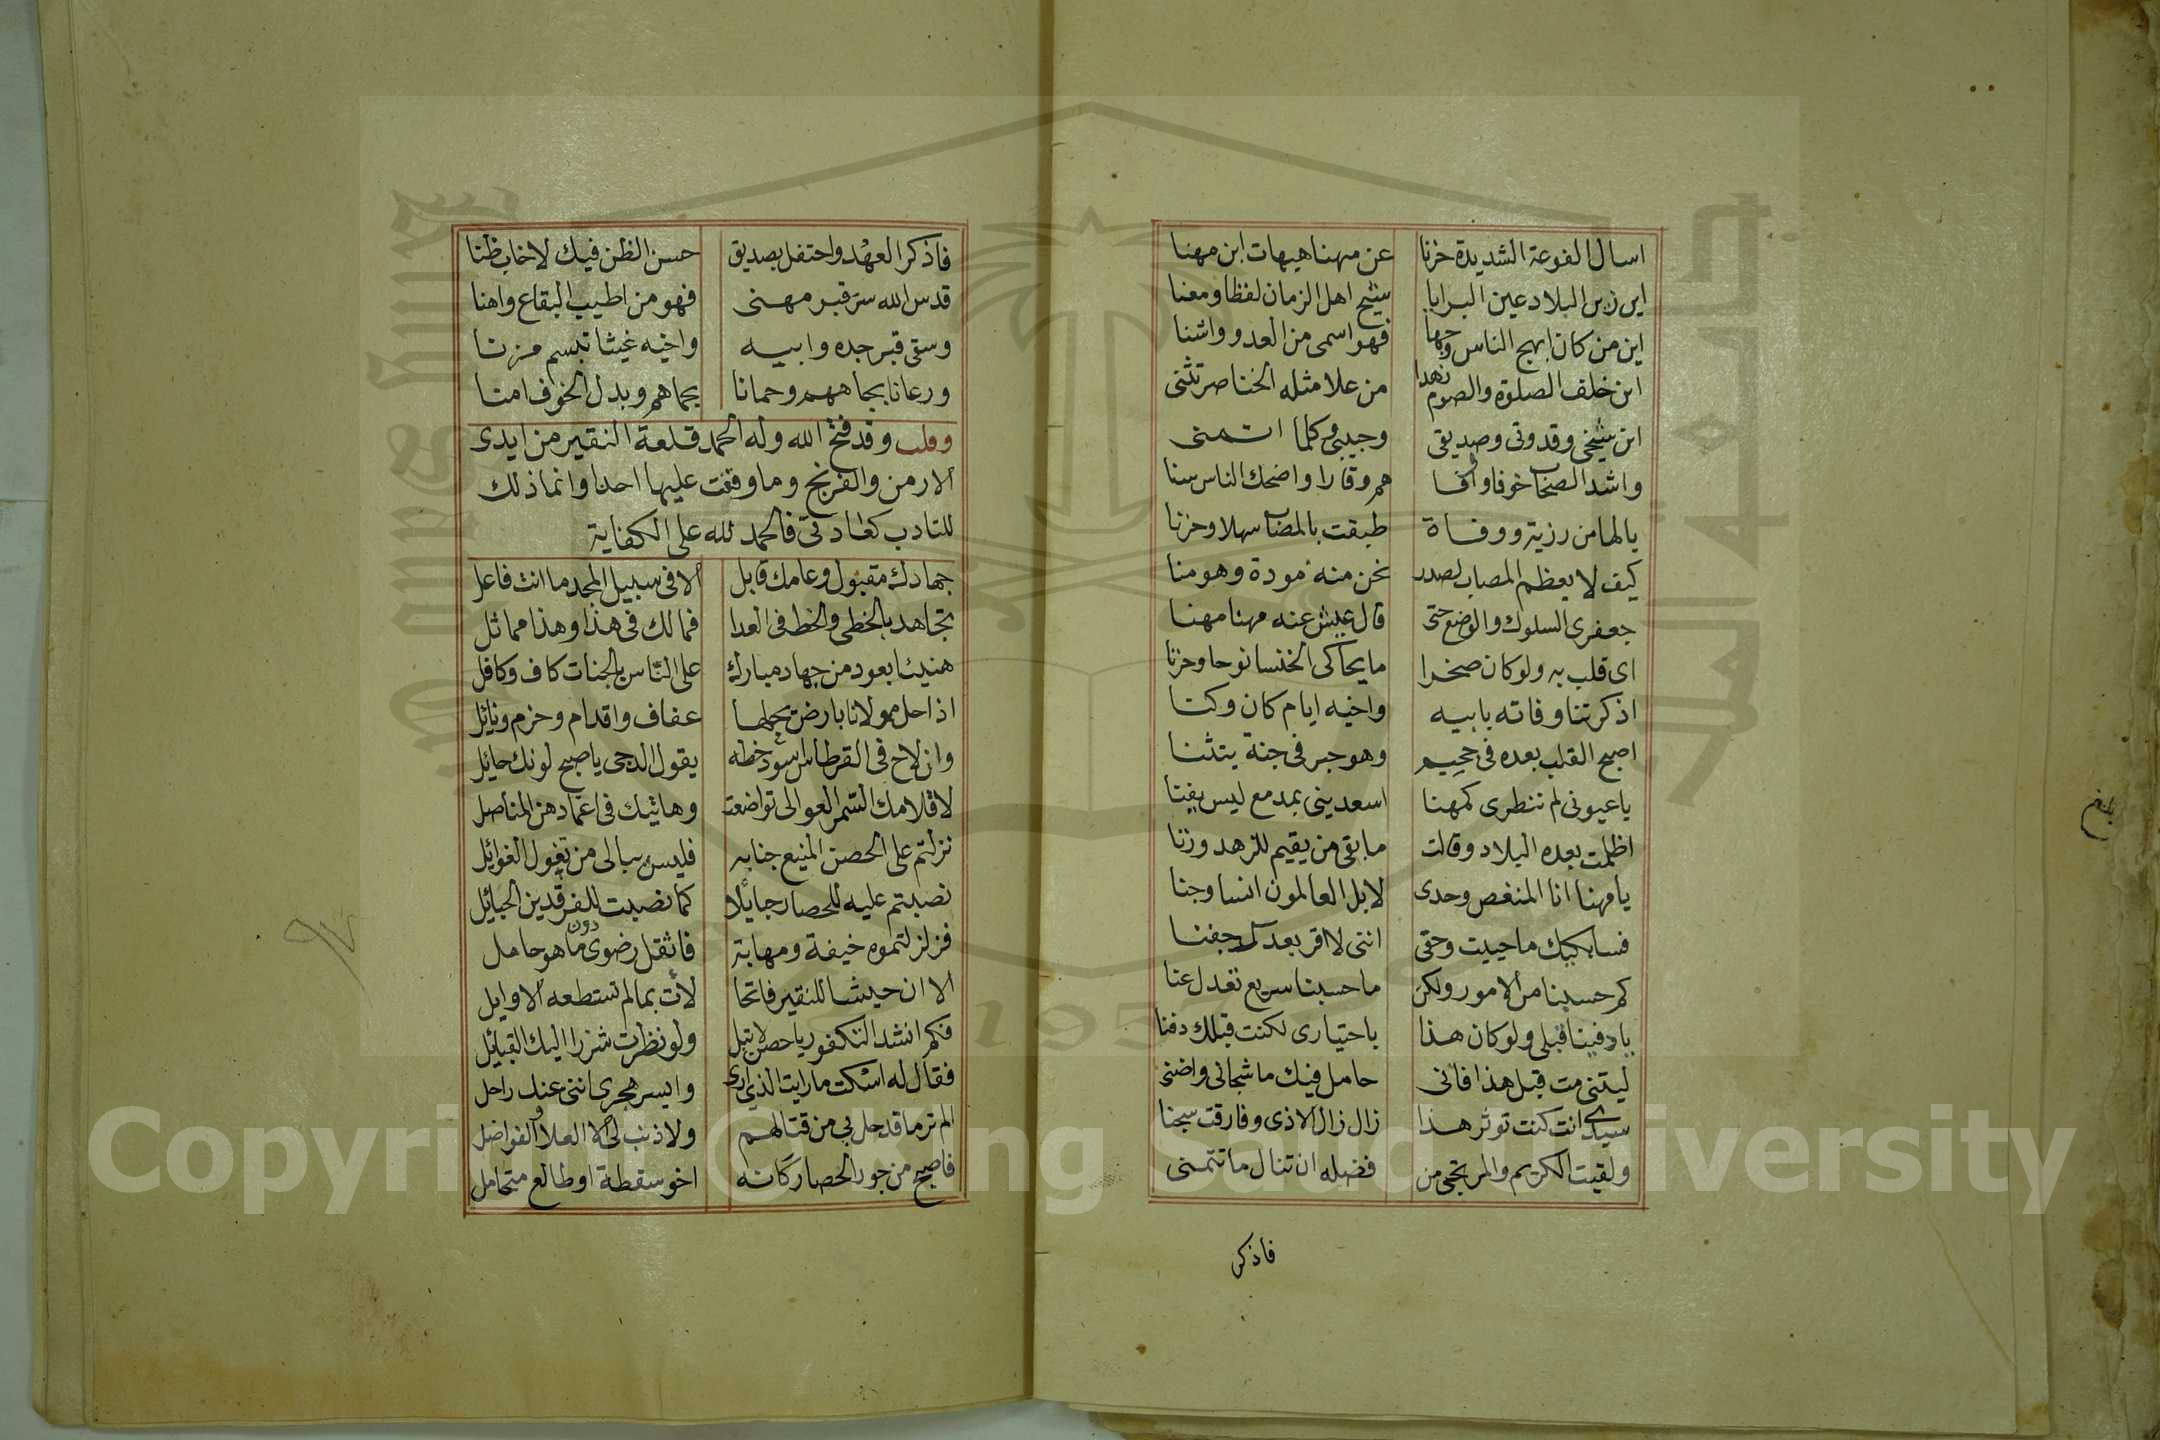 اسال الفوعة الشديدة حزنا عن مهنا هيهات اين مهنا
اين زين البلاد عين البرايا شيخ اهل الزمان لفظا ومعنا
اين من كان ابهج الناس وجها فهو اسمى من العدو واشنا
اين خلف الصلوة والصوم زهدا من علا مثله الخناصر تثنى
اين شيخي وقدوتي وصديقي وحبيبي وكلما اتمنى
واشد الصحاب خوفا هم وقارا واضحك الناس سنا
يا لها من رزية ووفاة طبقت بالمصاب سهلا وحزنا
كيف لا يعظم المصاب لصدر نحن منه مودة وهو منا
جعفرى السلوك والوضع حتى قال عبش عنه مهنا مهنا
اى قلب به ولو كان صخرا ما يحاكى الخنسا نوحا وحزنا
اذكرتنا وفاته بابيه واخيه ايام كان وكنا
اصبح القلب بعده في جحيم وهو جبر في جنة يتثنا
يا عيوني لم تنظرى كمهنا اسعديني بمدمع ليس يفنا
اظلمت بعده البلاد وقالت ما بقى من يقيم للزهد وزنا
يا مهنا انا المنغص وحدى لا بل العالمون انسا وجنا
فسابكيك ما حييت وحقى انني لا اقر بعدك جفنا
كم حسبنا من الامور ولكن ما حسبنا سريع تعدل عنا
يا دفينا قبلى ولو كان هذا باختيارى لكنت قبلك دفنا
ليتني مت قبل هذا فانى حامل فيك ما شجانى واضنى
سيدي انت كنت توثر هذا زال زال الاذى وفارقت سجنا
ولقيت الكريم والمرتجى من فضله ان تنال ما تتمنى
فاذكر
بلغ
فاذكر العهد واحتفل بصديق حسن الظن فيك لا خاب ظنا
قدس الله سر قبر مهنى فهو من اطيب البقاع واهنا
وسقى قبر جده وابيه واخيه غيثا تبسم مزنا
ورعانا بجاههم وحمانا بحماهم وبدل الخوف امنا
وقلت وقد فتح الله وله الحمد قلعة النقير من ايدى
الارمن والفرنج وما وقفت عليها احدا وانما ذلك
للتادب كعادتى فالحمد لله على الكفاية
جهادك مقبول وعامك قابل الا في سبيل المجد ما انت فاعل
تجاهد بالخطى والخط في العدا فمالك في هذا وهذا مماثل
هنيئا بعود من جهاد مبارك على الناس بالجنات كاف وكافل
اذا حل مولانا بارض يحلها عفاف واقدام وحزم ونايل
وان لاح في القرطاس اسود خطه يقول الدجى يا صبح لونك حايل
لاقلامك السمر العوالى تواضعت وهاتيك في اغمادهن المناصل
نزلتم على الحصن المنيع جنابه فليس يبالى من تغول الغوائل
نصبتم عليه للحصار حبائلا كما نصبت للفرقدين الحبائل
فزلزلتموه خيفة ومهابة فاثقل رضوى دون ما هو حامل
الا ان جيشا للنقير فاتحا لات بما لم تستطعه الاوايل
فكم انشد التكفور يا حصن لا تبل ولو نظرت شزرا اليك القبائل
فقال له اسكت ما رايت الذي ارى وايسر هجرى انني عنك راحل
الم تر ما قد حل بي من قتالهم ولا ذنب لى الا العلا والفواضل
فاصبح من جور الحصار كانه اخو سقطة او طالع متحامل
Copyright © King Saud University